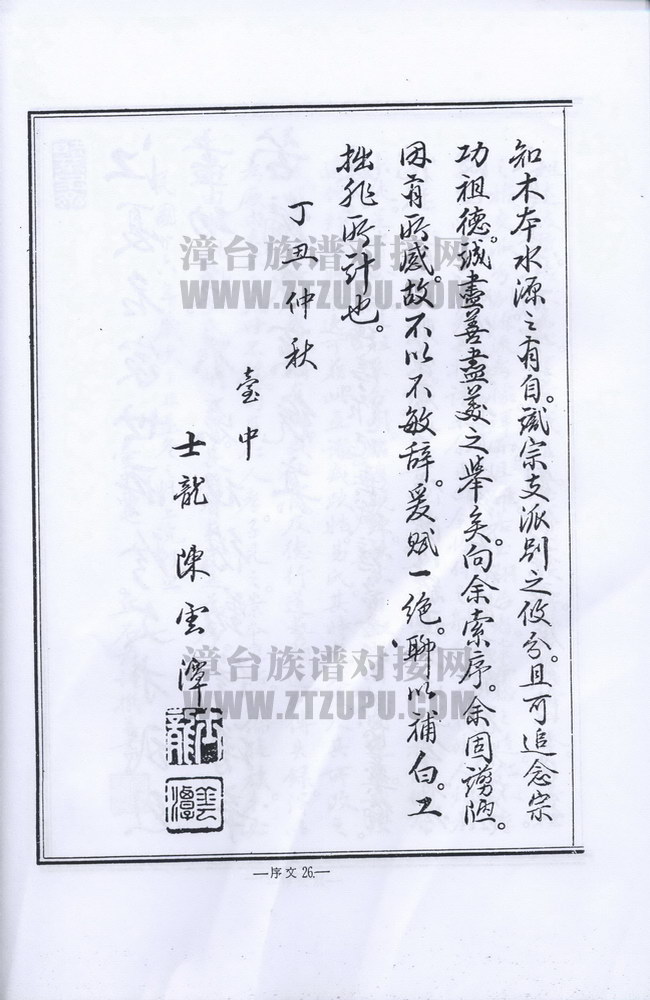 知木本水源之有自。識宗支派別之攸分。且可追念宗
功祖德。誠盡善盡美之舉矣。向余索序。余固譾陋。
因有所感。故不以不敏辞。爰賦一绝。聊以補白。工
拙非所計也。
丁丑仲秋
臺中
士龍 陳雲潭
士龍
雲潭
—序文26.—
漳台族谱对接网
WWW.ZTZUPU.COM
漳台族谱对接网
WWW.ZTZUPU.COM